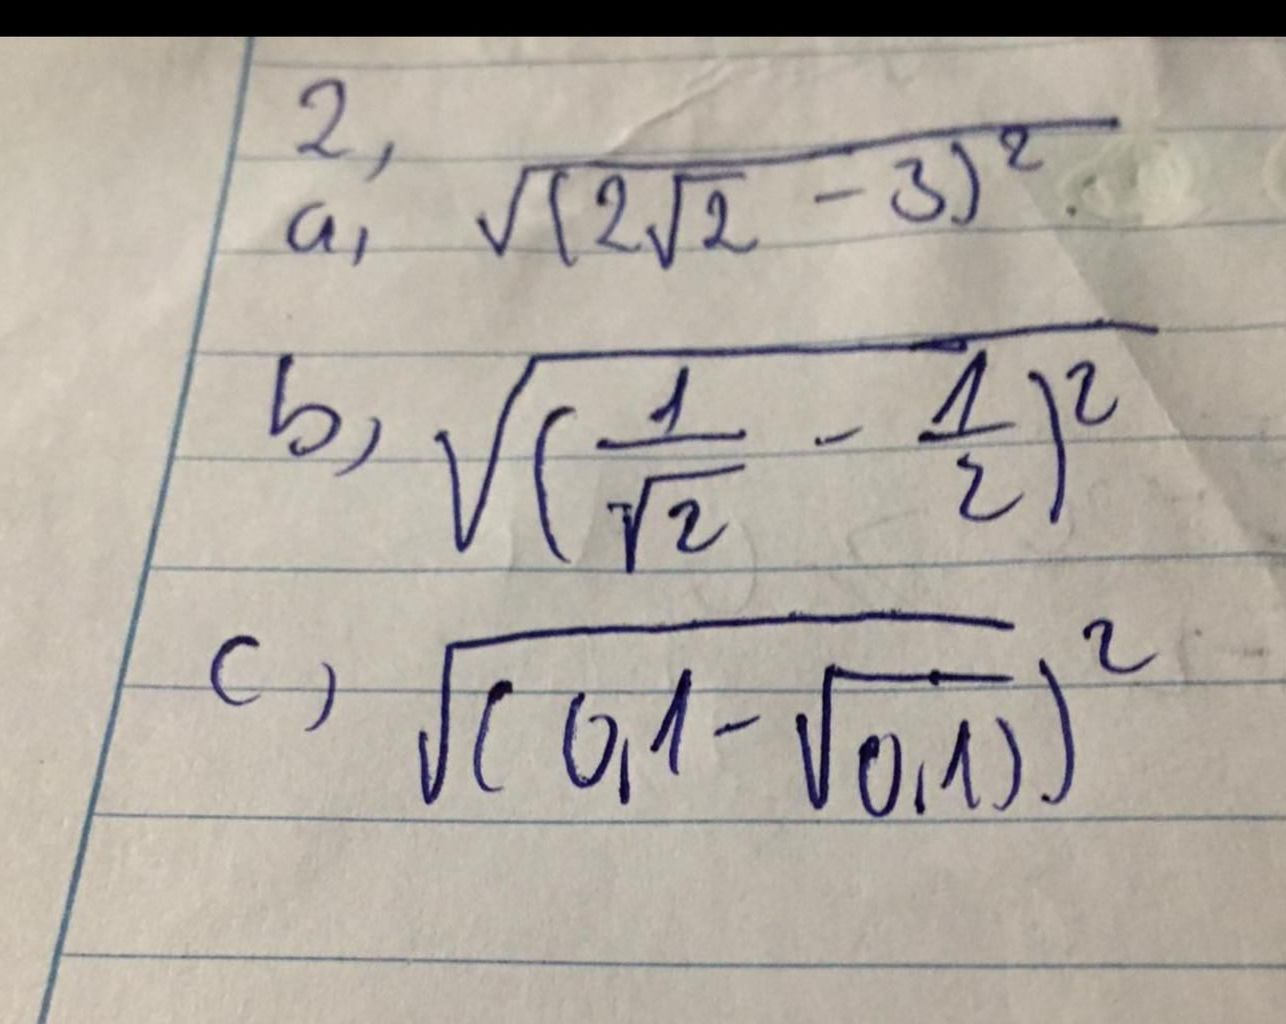 2,
a, √(2√2 - 3)²
b, √(1/√2 - 1/2)²
c, √(0,1 - √0,1))²